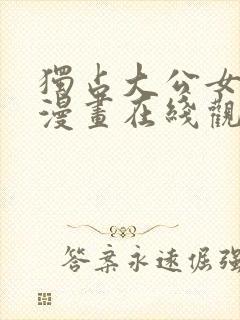 獨占大公女
漫畫在綫觀
答案永遠倔強